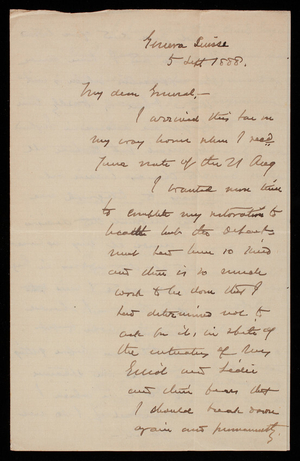 Geneva Suisse
5 Sept 1888.
My dear General,—
I arrived this far on
my way home when I recd
your note of the 21 Aug
I wanted more time
to complete my restoration to
health but the Dept
must have been so tried
and there is so much
work to be done that I
had determined not to
ask for it, in spite of
the entreaties of
and
and their fears that
I should break down
again and permanently.